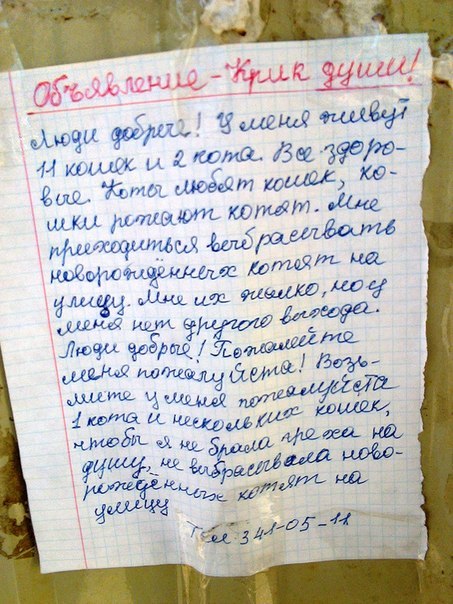 Объявление - Крик души!
Люди добрые! У меня живут
11 кошек и 2 кота. Все здоро-
вые. Коты любят кошек, ко-
шки рожают котят. Мне
приходиться выбрасывать
новорождённых котят на
улицу. Мне их жалко, но у
меня нет другого выхода.
Люди добрые! Пожалейте
меня пожалуйста! Возь-
мите у меня пожалуйста
1 кота и нескольких кошек,
чтобы я не брала греха на
душу, не выбрасывала ново-
рождённых котят на
улицу
Тел. 341-05-11